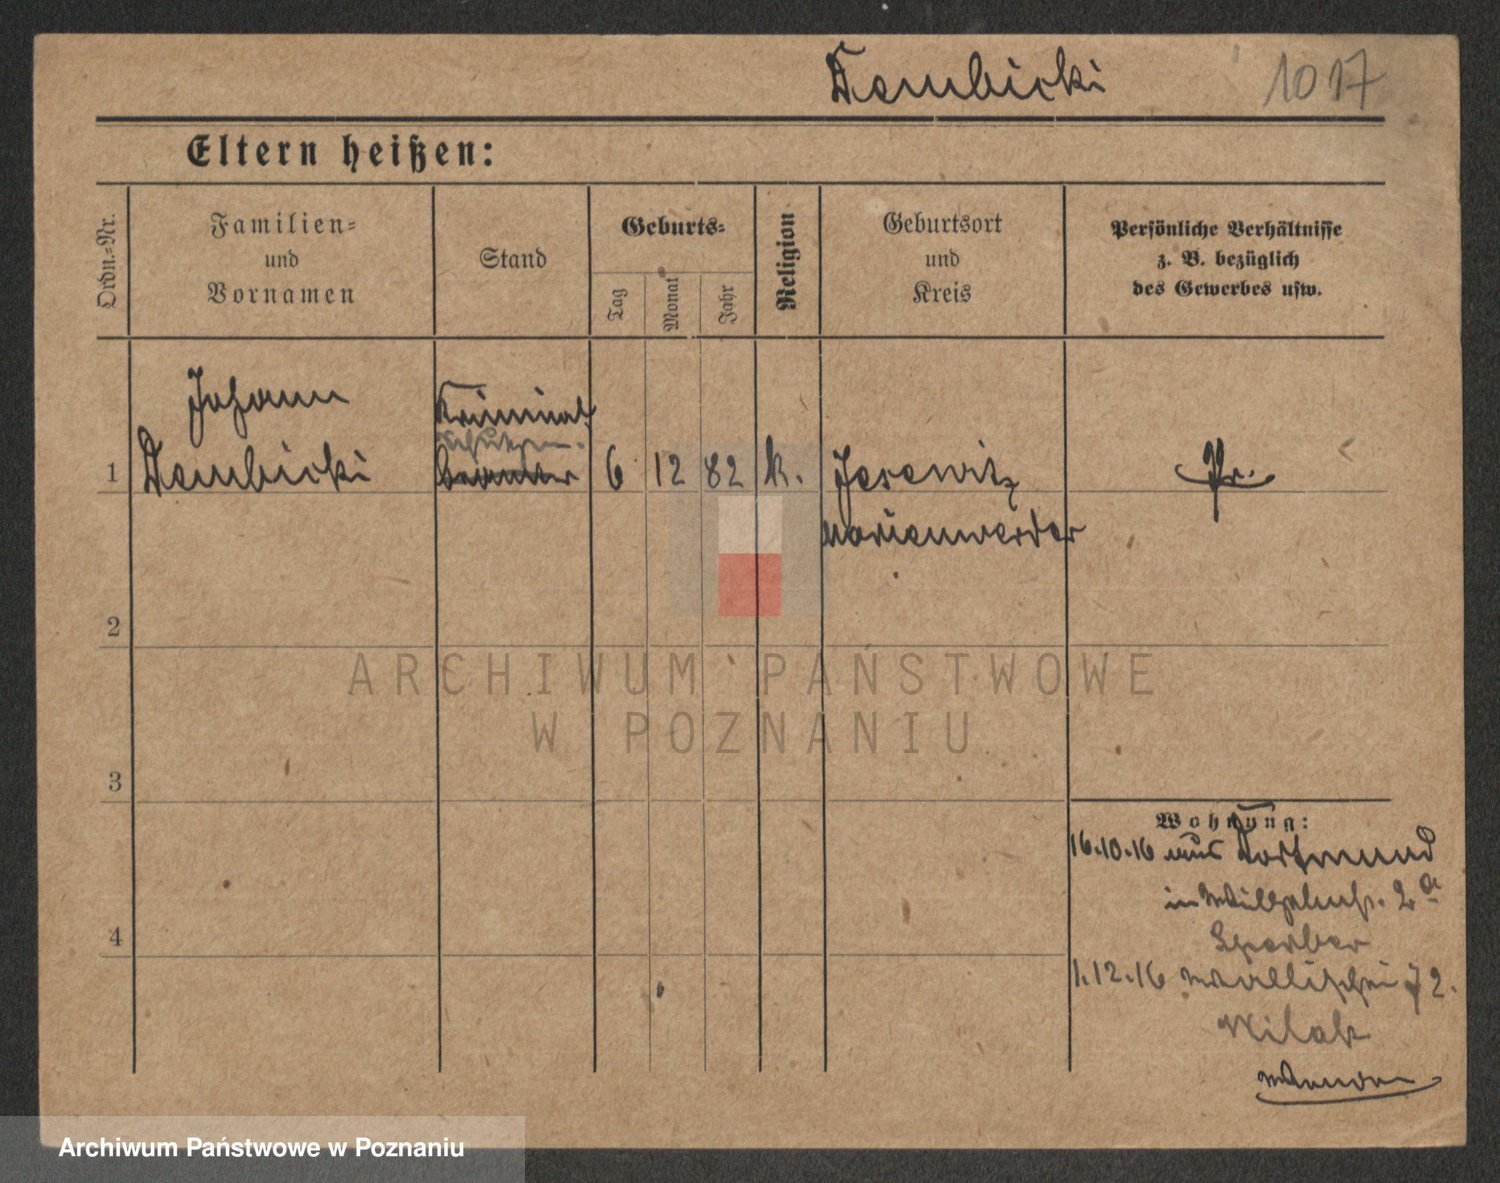 Dembicki 1017
Eltern heißen:
Ordn.=Nr.
Familien=
und
Vornamen
Stand
Geburts=
Tag
Monat
Jahr
Religion
Geburtsort
und
Kreis
Persönliche Verhältnisse
z. B. bezüglich
des Gewerbes usw.
Johann
Kriminal
1 Dembicki 6 12 82 k. Jesewitz Pr.
Marienwerder
2
3
4
Wohnung:
16.10.16 aus Dortmund
in Wilhelmst. 2a
Sperber
1.12.16 Wallischei 72.
ARCHIWUM PAŃSTWOWE
W POZNANIU
Archiwum Państwowe w Poznaniu